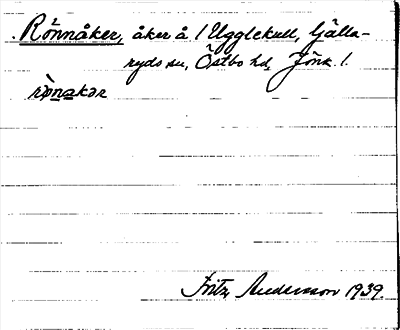 Rönnåker, åker å 1 Ugglekull, Gjälla-
ryds sn, Östbo hd, Jönk. l.
Fritz Andersson 1939.